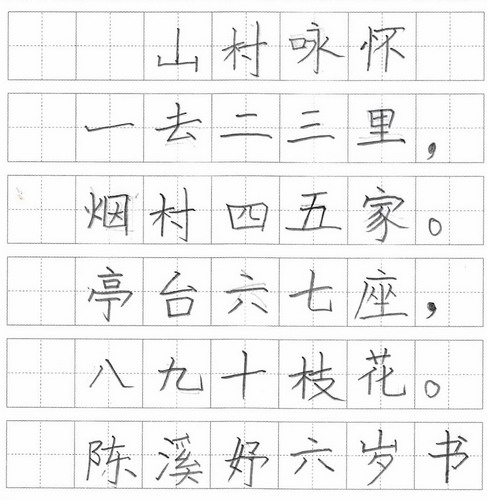 山村咏怀
一去二三里，
烟村四五家。
亭台六七座，
八九十枝花。
陈溪妤六岁书